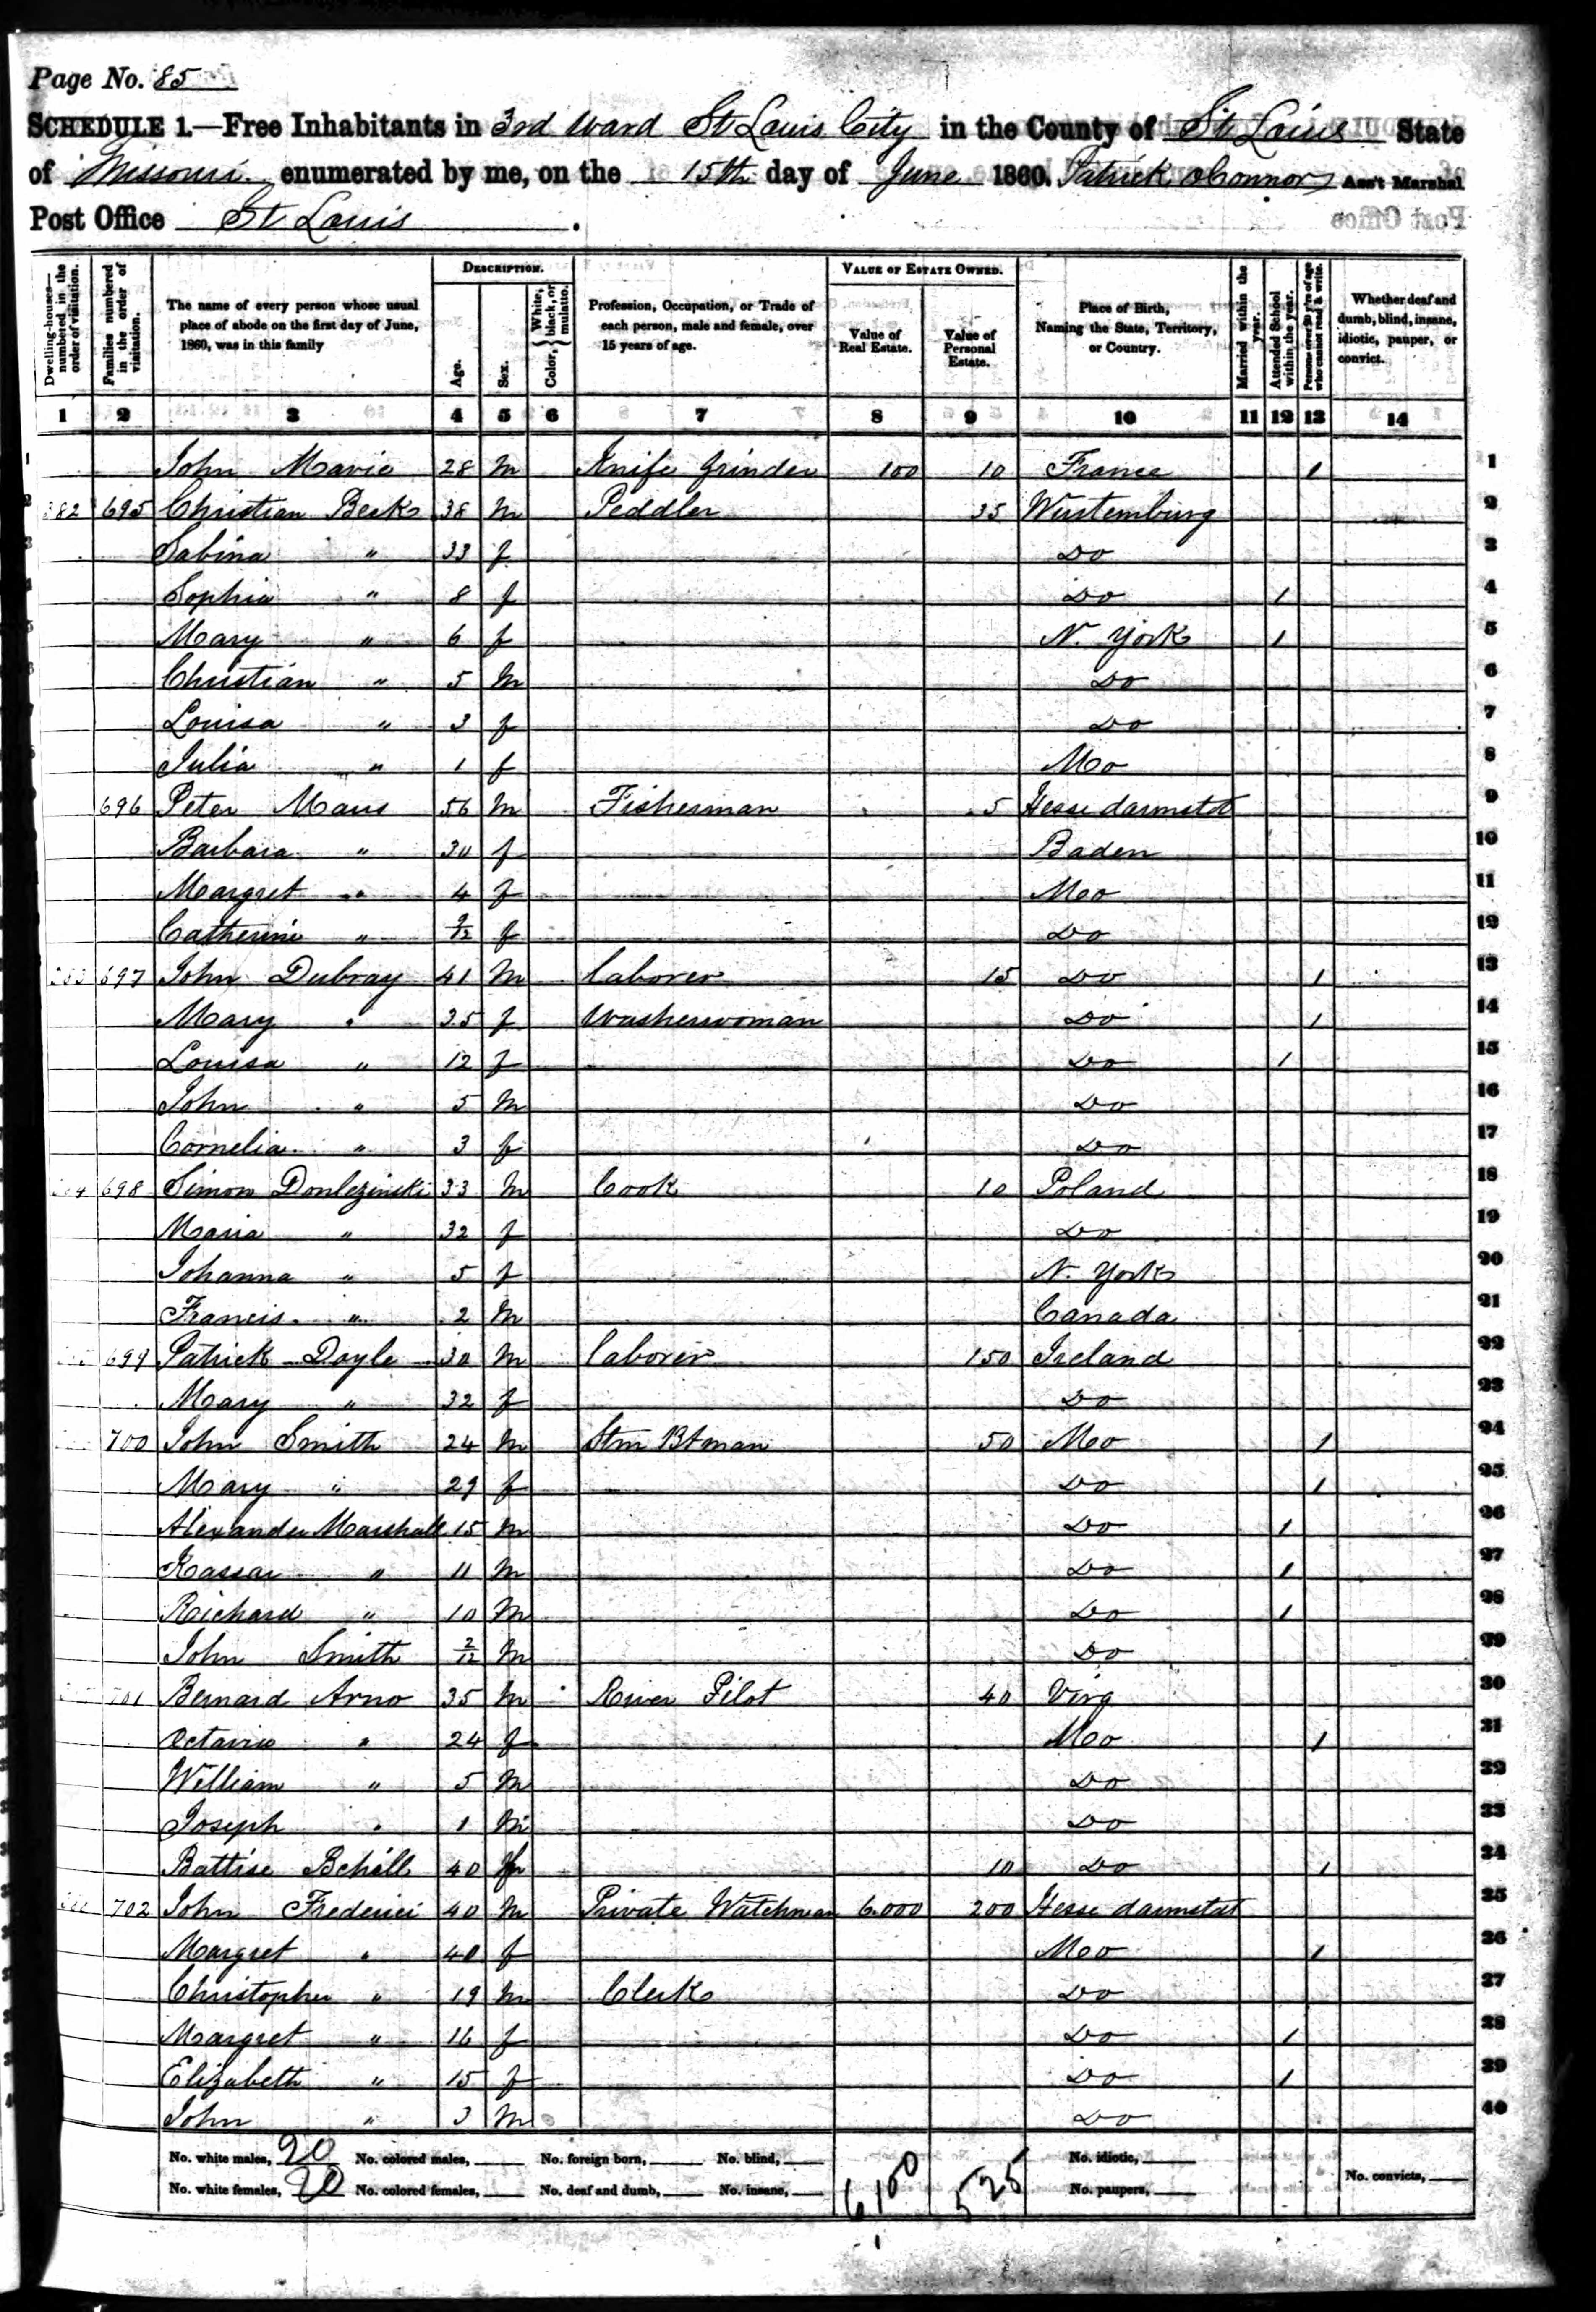 Page No. 85
SCHEDULE 1.—Free Inhabitants in 3rd Ward St Louis City in the County of St Louis State
of Missouri enumerated by me, on the 15th day of June 1860. Patrick OConnor Ass't Marshal
Post Office St Louis.
Dwelling-houses—numbered in the order of visitation.
Families numbered in the order of visitation.
The name of every person whose usual place of abode on the first day of June, 1860, was in this family
DESCRIPTION.
Age.
Sex.
Color, White, black, or mulatto.
Profession, Occupation, or Trade of each person, male and female, over 15 years of age.
VALUE OF ESTATE OWNED.
Value of Real Estate.
Value of Personal Estate.
Place of Birth, Naming the State, Territory, or Country.
Married within the year.
Attended School within the year.
Persons over 20 y'rs of age who cannot read & write.
Whether deaf and dumb, blind, insane, idiotic, pauper, or convict.
1 2 3 4 5 6 7 8 9 10 11 12 13 14
1 John Marie 28 m Knife Grinder 100 10 France 1 1
2 382 695 Christian Beck 38 m Peddler 35 Wurtemburg 2
3 Sabina " 33 f Do 3
4 Sophia " 8 f Do 1 4
5 Mary " 6 f N. York 1 5
6 Christian " 5 m Do 6
7 Louisa " 3 f Do 7
8 Julia " 1 f Mo 8
696 Peter Maus 56 m Fisherman 5 Hesse darmstat 9
Barbara " 30 f Baden 10
Margret " 4 f Mo 11
Catherine " 9/12 f Do 12
383 697 John Dubray 41 m Laborer 15 Do 1 13
Mary " 35 f Washerwoman Do 1 14
Louisa " 12 f Do 1 15
John " 5 m Do 16
Cornelia " 3 f Do 17
698 Simon Donlezinski 33 m Cook 10 Poland 18
Maria " 32 f Do 19
Johanna " 5 f N. York 20
Francis " 2 m Canada 21
699 Patrick Doyle 30 m Laborer 150 Ireland 22
Mary " 32 f Do 23
700 John Smith 24 m Stm Btman 50 Mo 1 24
Mary " 29 f Do 1 25
Alexander Marshall 15 m Do 1 26
Kassar " 11 m Do 1 27
Richard " 10 m Do 1 28
John Smith 2/12 m Do 29
701 Bernard Arno 35 m River Pilot 40 Virg 30
Octavia " 24 f Mo 1 31
William " 5 m Do 32
Joseph " 1 m Do 33
Battise Behill 40 m 10 Do 1 34
702 John Frederici 40 m Private Watchman 6.000 200 Hesse darmstat 35
Margret " 40 f Mo 1 36
Christopher " 19 m Clerk Do 37
Margret " 16 f Do 1 38
Elizabeth " 15 f Do 1 39
John " 3 m Do 40
No. white males, 20 No. colored males, No. foreign born, No. blind, 6,100 525 No. idiotic,
No. white females, 20 No. colored females, No. deaf and dumb, No. insane, No. paupers, No. convicts,